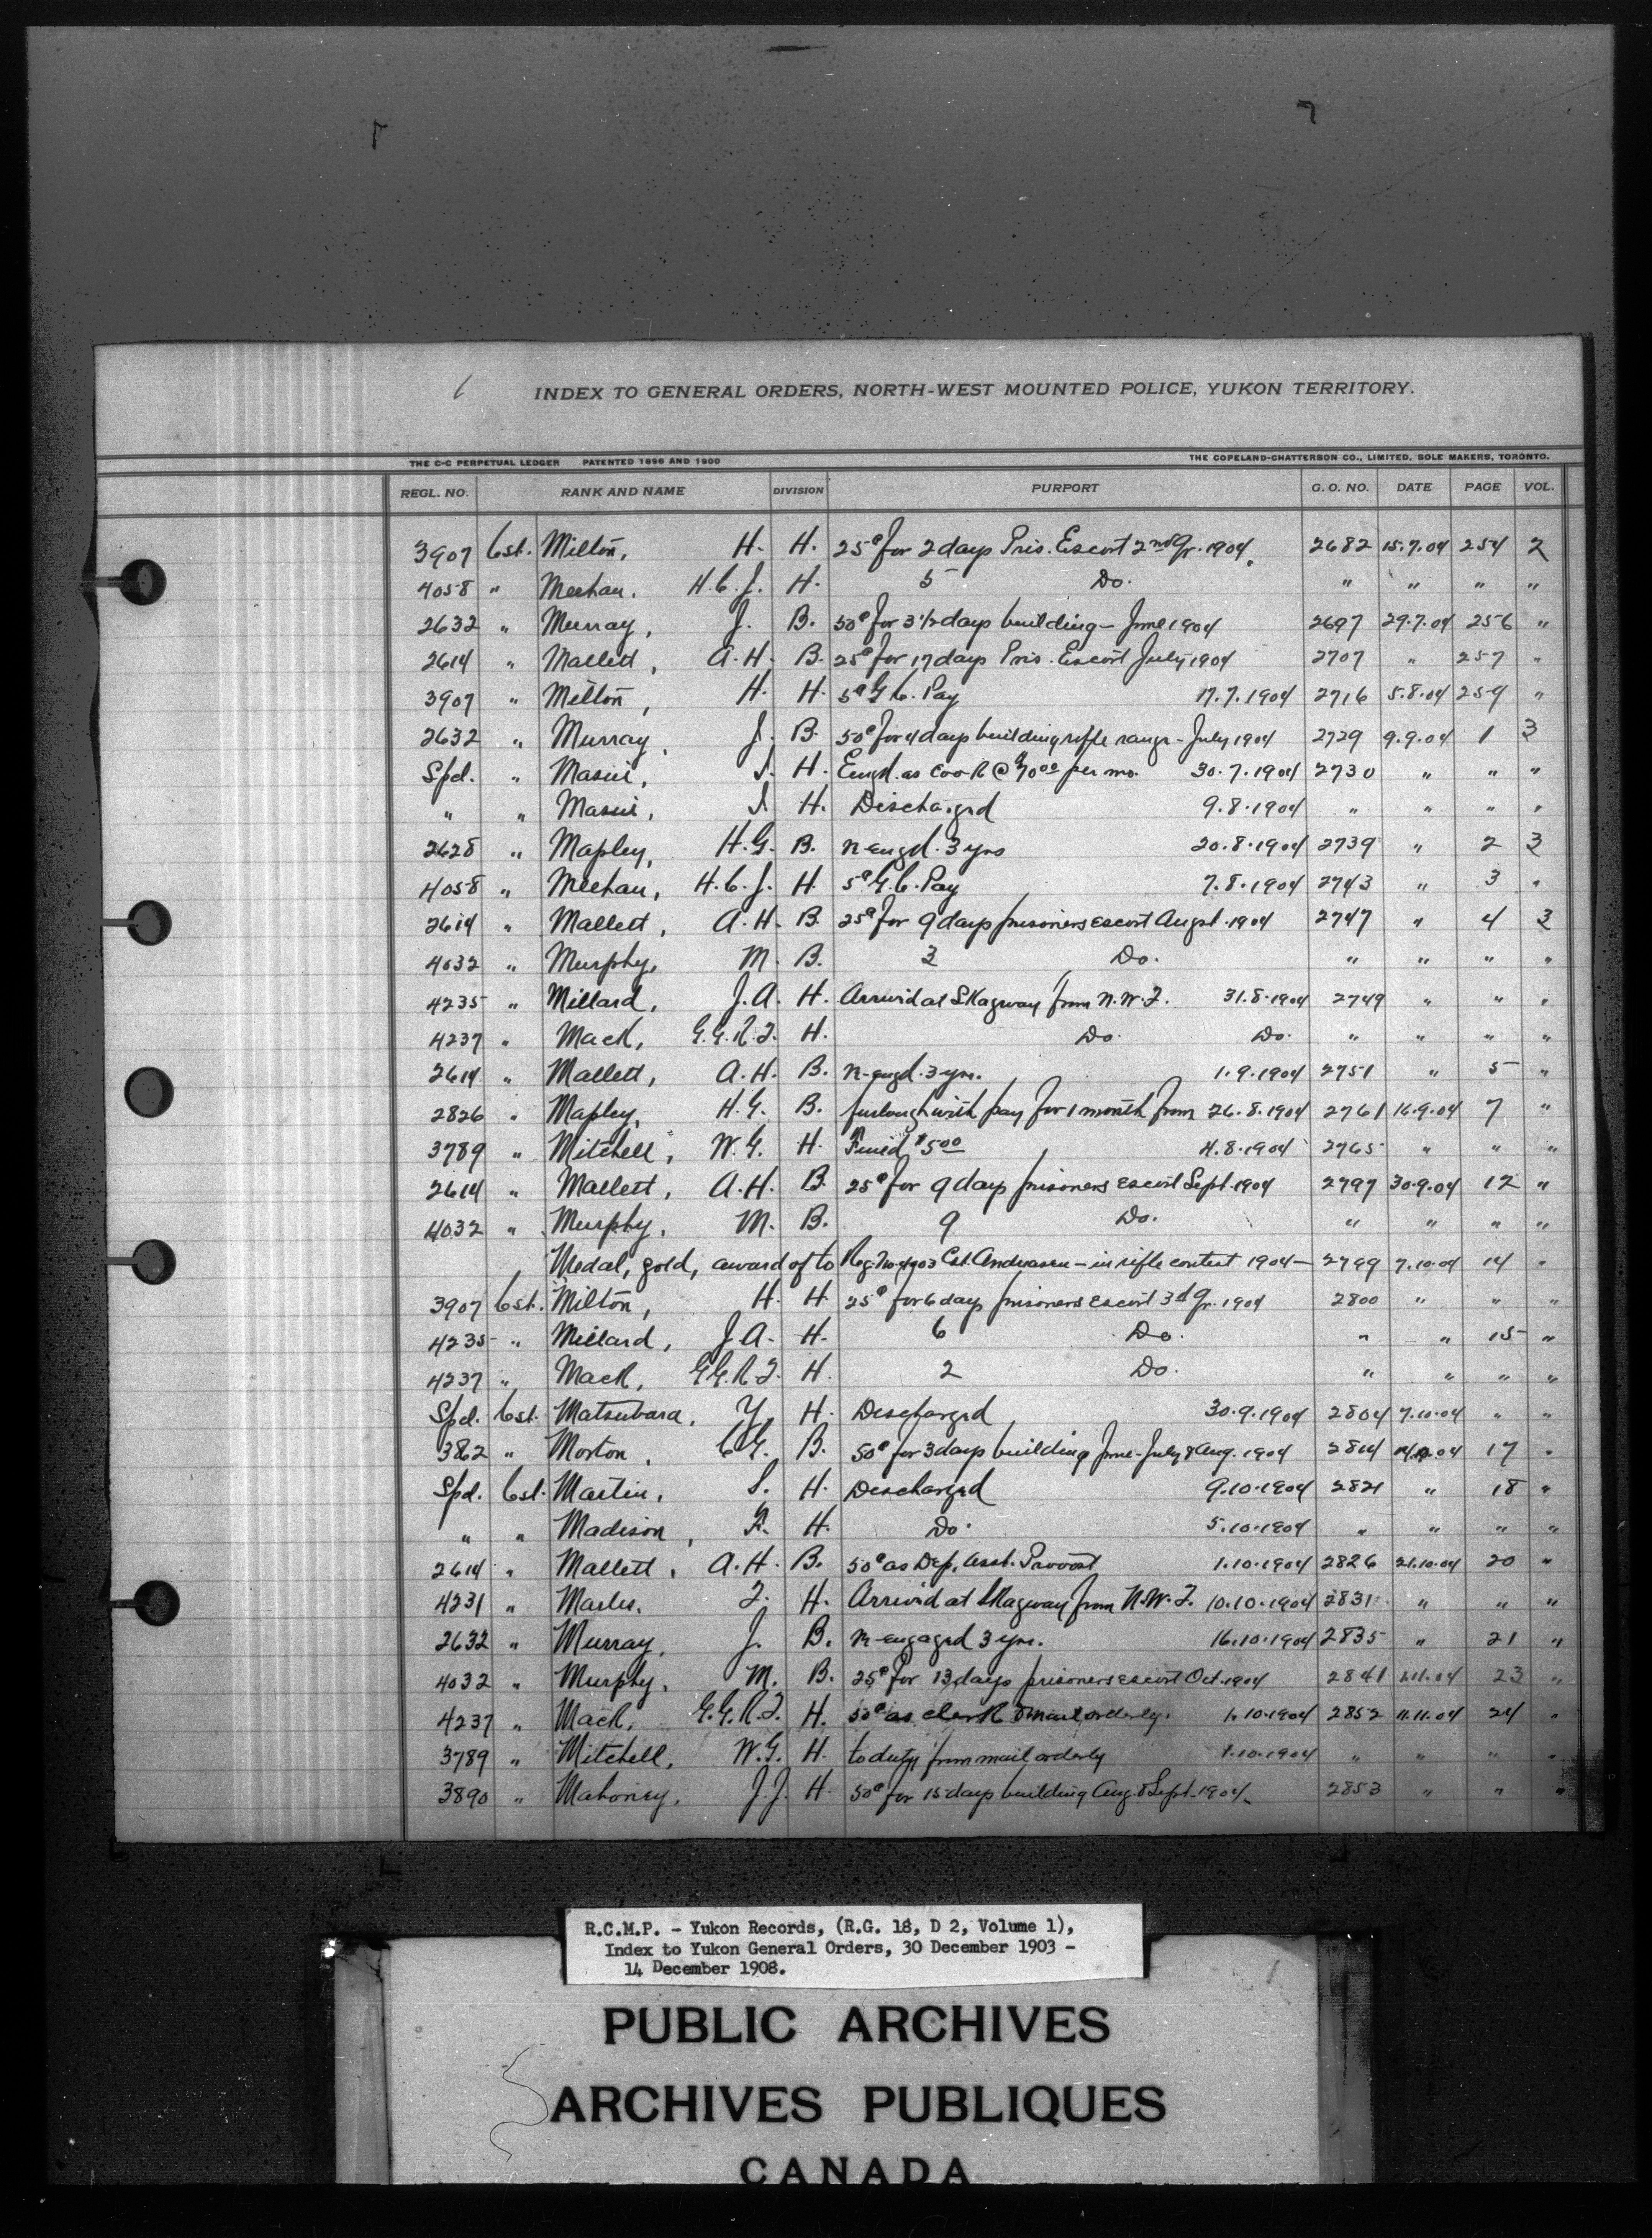 6 INDEX TO GENERAL ORDERS, NORTH-WEST MOUNTED POLICE, YUKON TERRITORY.
THE C-C PERPETUAL LEDGER PATENTED 1896 AND 1900 THE COPELAND-CHATTERSON CO., LIMITED, SOLE MAKERS, TORONTO.
REGL. NO. RANK AND NAME DIVISION PURPORT G. O. NO. DATE PAGE VOL.
3907 Cst. Milton, H. H. 25¢ for 2 days Pris. Escort 2nd Qr. 1904. 2682 15.7.04 254 2
4058 " Meehan. H.C.J. H. 5 Do. " " " "
2632 " Murray, J. B. 50¢ for 3 1/2 days building - June 1904 2697 29.7.04 256 "
2614 " Mallett, A.H. B. 25¢ for 17 days Pris. Escort July 1904 2707 " 257 "
3907 " Milton, H. H. 5¢ G.C. Pay 17.7.1904 2716 5.8.04 259 "
2632 " Murray, J. B. 50¢ for 4 days building rifle range - July 1904 2729 9.9.04 1 3
Spl. " H. Engd. as Cook @ per mo. 30.7.1904 2730 " " "
" " H. Discharged 9.8.1904 " " " "
2628 " Mapley, H.G. B. re-engd. 3 yrs 20.8.1904 2739 " 2 3
4058 " Meehan, H.C.J. H. 5¢ G.C. Pay 7.8.1904 2743 " 3 "
2614 " Mallett, A.H. B. 25¢ for 9 days prisoners escort Augst. 1904 2747 " 4 3
4032 " Murphy, M. B. 3 Do. " " " "
4235 " Millard, J.A. H. Arrived at Skagway from N.W.T. 31.8.1904 2749 " " "
4237 " Mack, G.G.R.T. H. Do. Do. " " " "
2614 " Mallett, A.H. B. re-engd. 3 yrs. 1.9.1904 2751 " 5 "
2826 " Mapley, H.G. B. furlough with pay for 1 month from 26.8.1904 2761 16.9.04 7 "
3789 " Mitchell, W.G. H. Fined $5.00 4.8.1904 2765 " " "
2614 " Mallett, A.H. B. 25¢ for 9 days prisoners escort Sept. 1904 2797 30.9.04 12 "
4032 " Murphy, M. B. 9 Do. " " " "
Medal, gold, award of to Reg. No. 4903 Cst. Andreasen - in rifle contest 1904 - 2799 7.10.04 14 "
3907 Cst. Milton, H. H. 25¢ for 6 days prisoners escort 3d Qr. 1904 2800 " " "
4235 " Millard, J.A. H. 6 Do. " " 15 "
4237 " Mack, G.G.R.T. H. 2 Do. " " " "
Spl. Cst. Matsubara, Y. H. Discharged 30.9.1904 2804 7.10.04 " "
3862 " Morton, C.G. B. 50¢ for 3 days building June - July & Aug. 1904 2814 04 17 "
Spl. Cst. Martin, S. H. Discharged 9.10.1904 2821 " 18 "
" " Madison, F. H. Do. 5.10.1904 " " " "
2614 " Mallett, A.H. B. 50¢ as Dep. Asst. Provost 1.10.1904 2826 21.10.04 20 "
4231 " Marles. T. H. Arrived at Skagway from N.W.T. 10.10.1904 2831 " " "
2632 " Murray, J. B. re-engaged 3 yrs. 16.10.1904 2835 " 21 "
4032 " Murphy, M. B. 25¢ for 13 days prisoners escort Oct. 1904 2841 1.11.04 23 "
4237 " Mack, G.G.R.T. H. 50¢ as clerk & mail orderly. 1.10.1904 2852 11.11.04 24 "
3789 " Mitchell, W.G. H. to duty from mail orderly 1.10.1904 " " " "
3890 " Mahoney, J.J. H. 50¢ for 15 days building Aug. & Sept. 1904. 2853 " " "
R.C.M.P. - Yukon Records, (R.G. 18, D 2, Volume 1),
Index to Yukon General Orders, 30 December 1903 -
14 December 1908.
PUBLIC ARCHIVES
ARCHIVES PUBLIQUES
CANADA